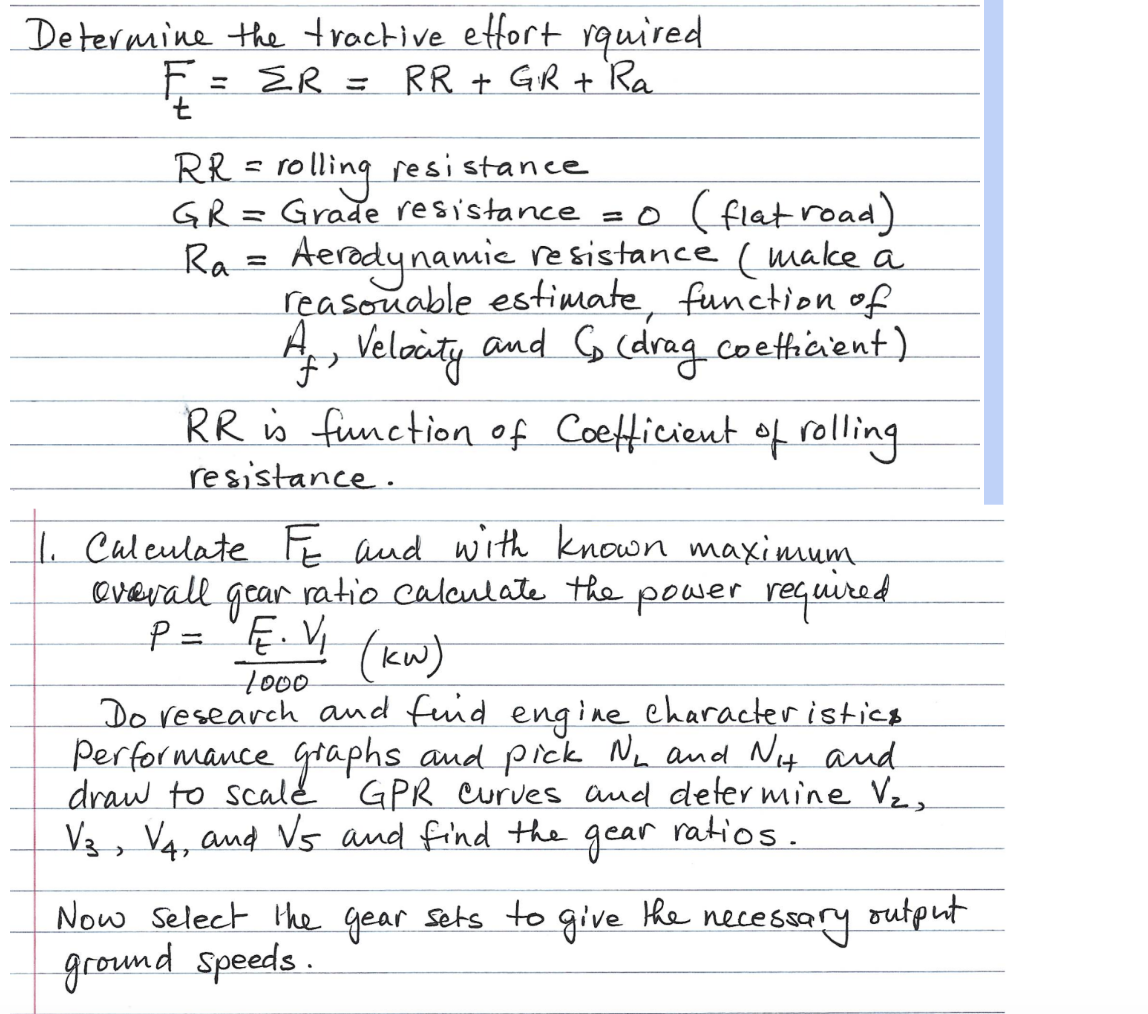 Determine the tractive effort rquired
Ft = ΣR = RR + GR + Ra
RR = rolling resistance
GR = Grade resistance = 0 (flat road)
Ra = Aerodynamic resistance (make a
reasonable estimate, function of
Af, Velocity and CD (drag coefficient)
RR is function of Coefficient of rolling
resistance.
1. Calculate Ft and with known maximum
overall gear ratio calculate the power required
P = Ft · V1 / 1000 (kW)
Do research and find engine characteristics
performance graphs and pick NL and NH and
draw to scale GPR curves and determine V2,
V3, V4, and V5 and find the gear ratios.
Now select the gear sets to give the necessary output
ground speeds.